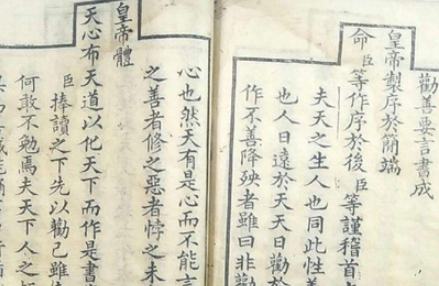 勸善要言書成
皇帝製序於簡端
命臣等作序於後臣等謹稽首
夫天之生人也同此性善
也人日遠於天天日勸於
作不善降殃者雖曰非勸
心也然天有是心而不能言
之善者修之惡者悖之未
皇帝體
天心布天道以化天下而作是書
臣捧讀之下先以勸己雖
何敢不勉焉夫天下人之